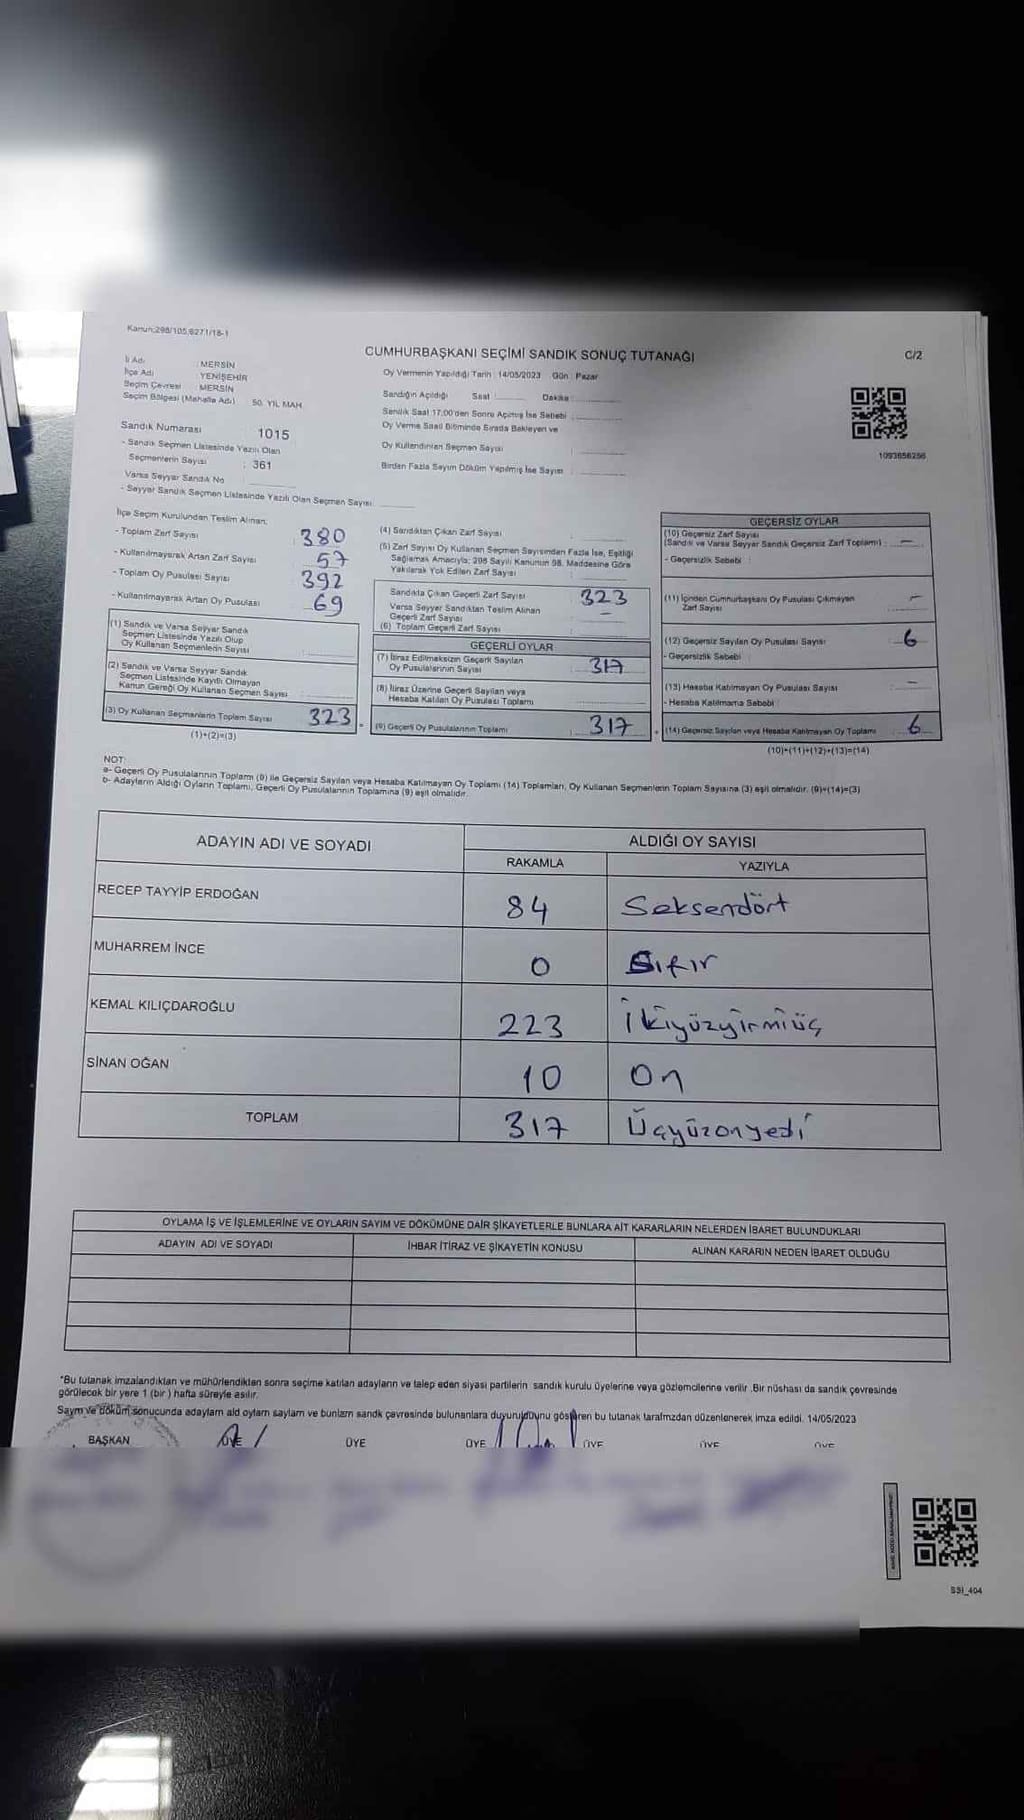 Kanun:298/105,6271/18-1
CUMHURBAŞKANI SEÇİMİ SANDIK SONUÇ TUTANAĞI
C/2
İl Adı : MERSİN
İlçe Adı : YENİŞEHİR
Seçim Çevresi : MERSİN
Seçim Bölgesi (Mahalle Adı) 50. YIL MAH.
Oy Vermenin Yapıldığı Tarih : 14/05/2023 Gün : Pazar
Sandığın Açıldığı Saat : Dakika :
Sandık Saat 17:00'den Sonra Açılmış İse Sebebi :
Oy Verme Saati Bitiminde Sırada Bekleyen ve
Oy Kullandırılan Seçmen Sayısı :
Birden Fazla Sayım Döküm Yapılmış İse Sayısı :
1093656256
Sandık Numarası 1015
- Sandık Seçmen Listesinde Yazılı Olan
Seçmenlerin Sayısı : 361
Varsa Seyyar Sandık No
- Seyyar Sandık Seçmen Listesinde Yazılı Olan Seçmen Sayısı
İlçe Seçim Kurulundan Teslim Alınan;
- Toplam Zarf Sayısı 380
- Kullanılmayarak Artan Zarf Sayısı 57
- Toplam Oy Pusulası Sayısı 392
- Kullanılmayarak Artan Oy Pusulası 69
(1) Sandık ve Varsa Seyyar Sandık
Seçmen Listesinde Yazılı Olup
Oy Kullanan Seçmenlerin Sayısı
(2) Sandık ve Varsa Seyyar Sandık
Seçmen Listesinde Kayıtlı Olmayan
Kanun Gereği Oy Kullanan Seçmen Sayısı
(3) Oy Kullanan Seçmenlerin Toplam Sayısı 323
(1)+(2)=(3)
(4) Sandıktan Çıkan Zarf Sayısı :
(5) Zarf Sayısı Oy Kullanan Seçmen Sayısından Fazla İse, Eşitliği
Sağlamak Amacıyla; 298 Sayılı Kanunun 98. Maddesine Göre
Yakılarak Yok Edilen Zarf Sayısı :
Sandıkta Çıkan Geçerli Zarf Sayısı : 323
Varsa Seyyar Sandıktan Teslim Alınan
Geçerli Zarf Sayısı : –
(6) Toplam Geçerli Zarf Sayısı :
GEÇERLİ OYLAR
(7) İtiraz Edilmeksizin Geçerli Sayılan
Oy Pusulalarının Sayısı : 317
(8) İtiraz Üzerine Geçerli Sayılan veya
Hesaba Katılan Oy Pusulası Toplamı :
(9) Geçerli Oy Pusulalarının Toplamı : 317
GEÇERSİZ OYLAR
(10) Geçersiz Zarf Sayısı
(Sandık ve Varsa Seyyar Sandık Geçersiz Zarf Toplamı) : –
- Geçersizlik Sebebi :
(11) İçinden Cumhurbaşkanı Oy Pusulası Çıkmayan
Zarf Sayısı : –
(12) Geçersiz Sayılan Oy Pusulası Sayısı : 6
- Geçersizlik Sebebi :
(13) Hesaba Katılmayan Oy Pusulası Sayısı : –
- Hesaba Katılmama Sebebi :
(14) Geçersiz Sayılan veya Hesaba Katılmayan Oy Toplamı : 6
(10)+(11)+(12)+(13)=(14)
NOT:
a- Geçerli Oy Pusulalarının Toplamı (9) ile Geçersiz Sayılan veya Hesaba Katılmayan Oy Toplamı (14) Toplamları, Oy Kullanan Seçmenlerin Toplam Sayısına (3) eşit olmalıdır. (9)+(14)=(3)
b- Adayların Aldığı Oyların Toplamı, Geçerli Oy Pusulalarının Toplamına (9) eşit olmalıdır.
ADAYIN ADI VE SOYADI ALDIĞI OY SAYISI
RAKAMLA YAZIYLA
RECEP TAYYİP ERDOĞAN 84 Seksendört
MUHARREM İNCE 0 Sıfır
KEMAL KILIÇDAROĞLU 223 İkiyüzyirmiüç
SİNAN OĞAN 10 On
TOPLAM 317 Üçyüzonyedi
OYLAMA İŞ VE İŞLEMLERİNE VE OYLARIN SAYIM VE DÖKÜMÜNE DAİR ŞİKAYETLERLE BUNLARA AİT KARARLARIN NELERDEN İBARET BULUNDUKLARI
ADAYIN ADI VE SOYADI İHBAR İTİRAZ VE ŞİKAYETİN KONUSU ALINAN KARARIN NEDEN İBARET OLDUĞU
*Bu tutanak imzalandıktan ve mühürlendikten sonra seçime katılan adayların ve talep eden siyasi partilerin sandık kurulu üyelerine veya gözlemcilerine verilir .Bir nüshası da sandık çevresinde
görülecek bir yere 1 (bir ) hafta süreyle asılır.
Sayım ve döküm sonucunda adaylarn ald oylarn saylarn ve bunların sandk çevresinde bulunanlara duyurulduunu gösteren bu tutanak tarafmzdan düzenlenerek imza edildi. 14/05/2023
BAŞKAN ÜYE ÜYE ÜYE ÜYE ÜYE ÜYE
SSI_404